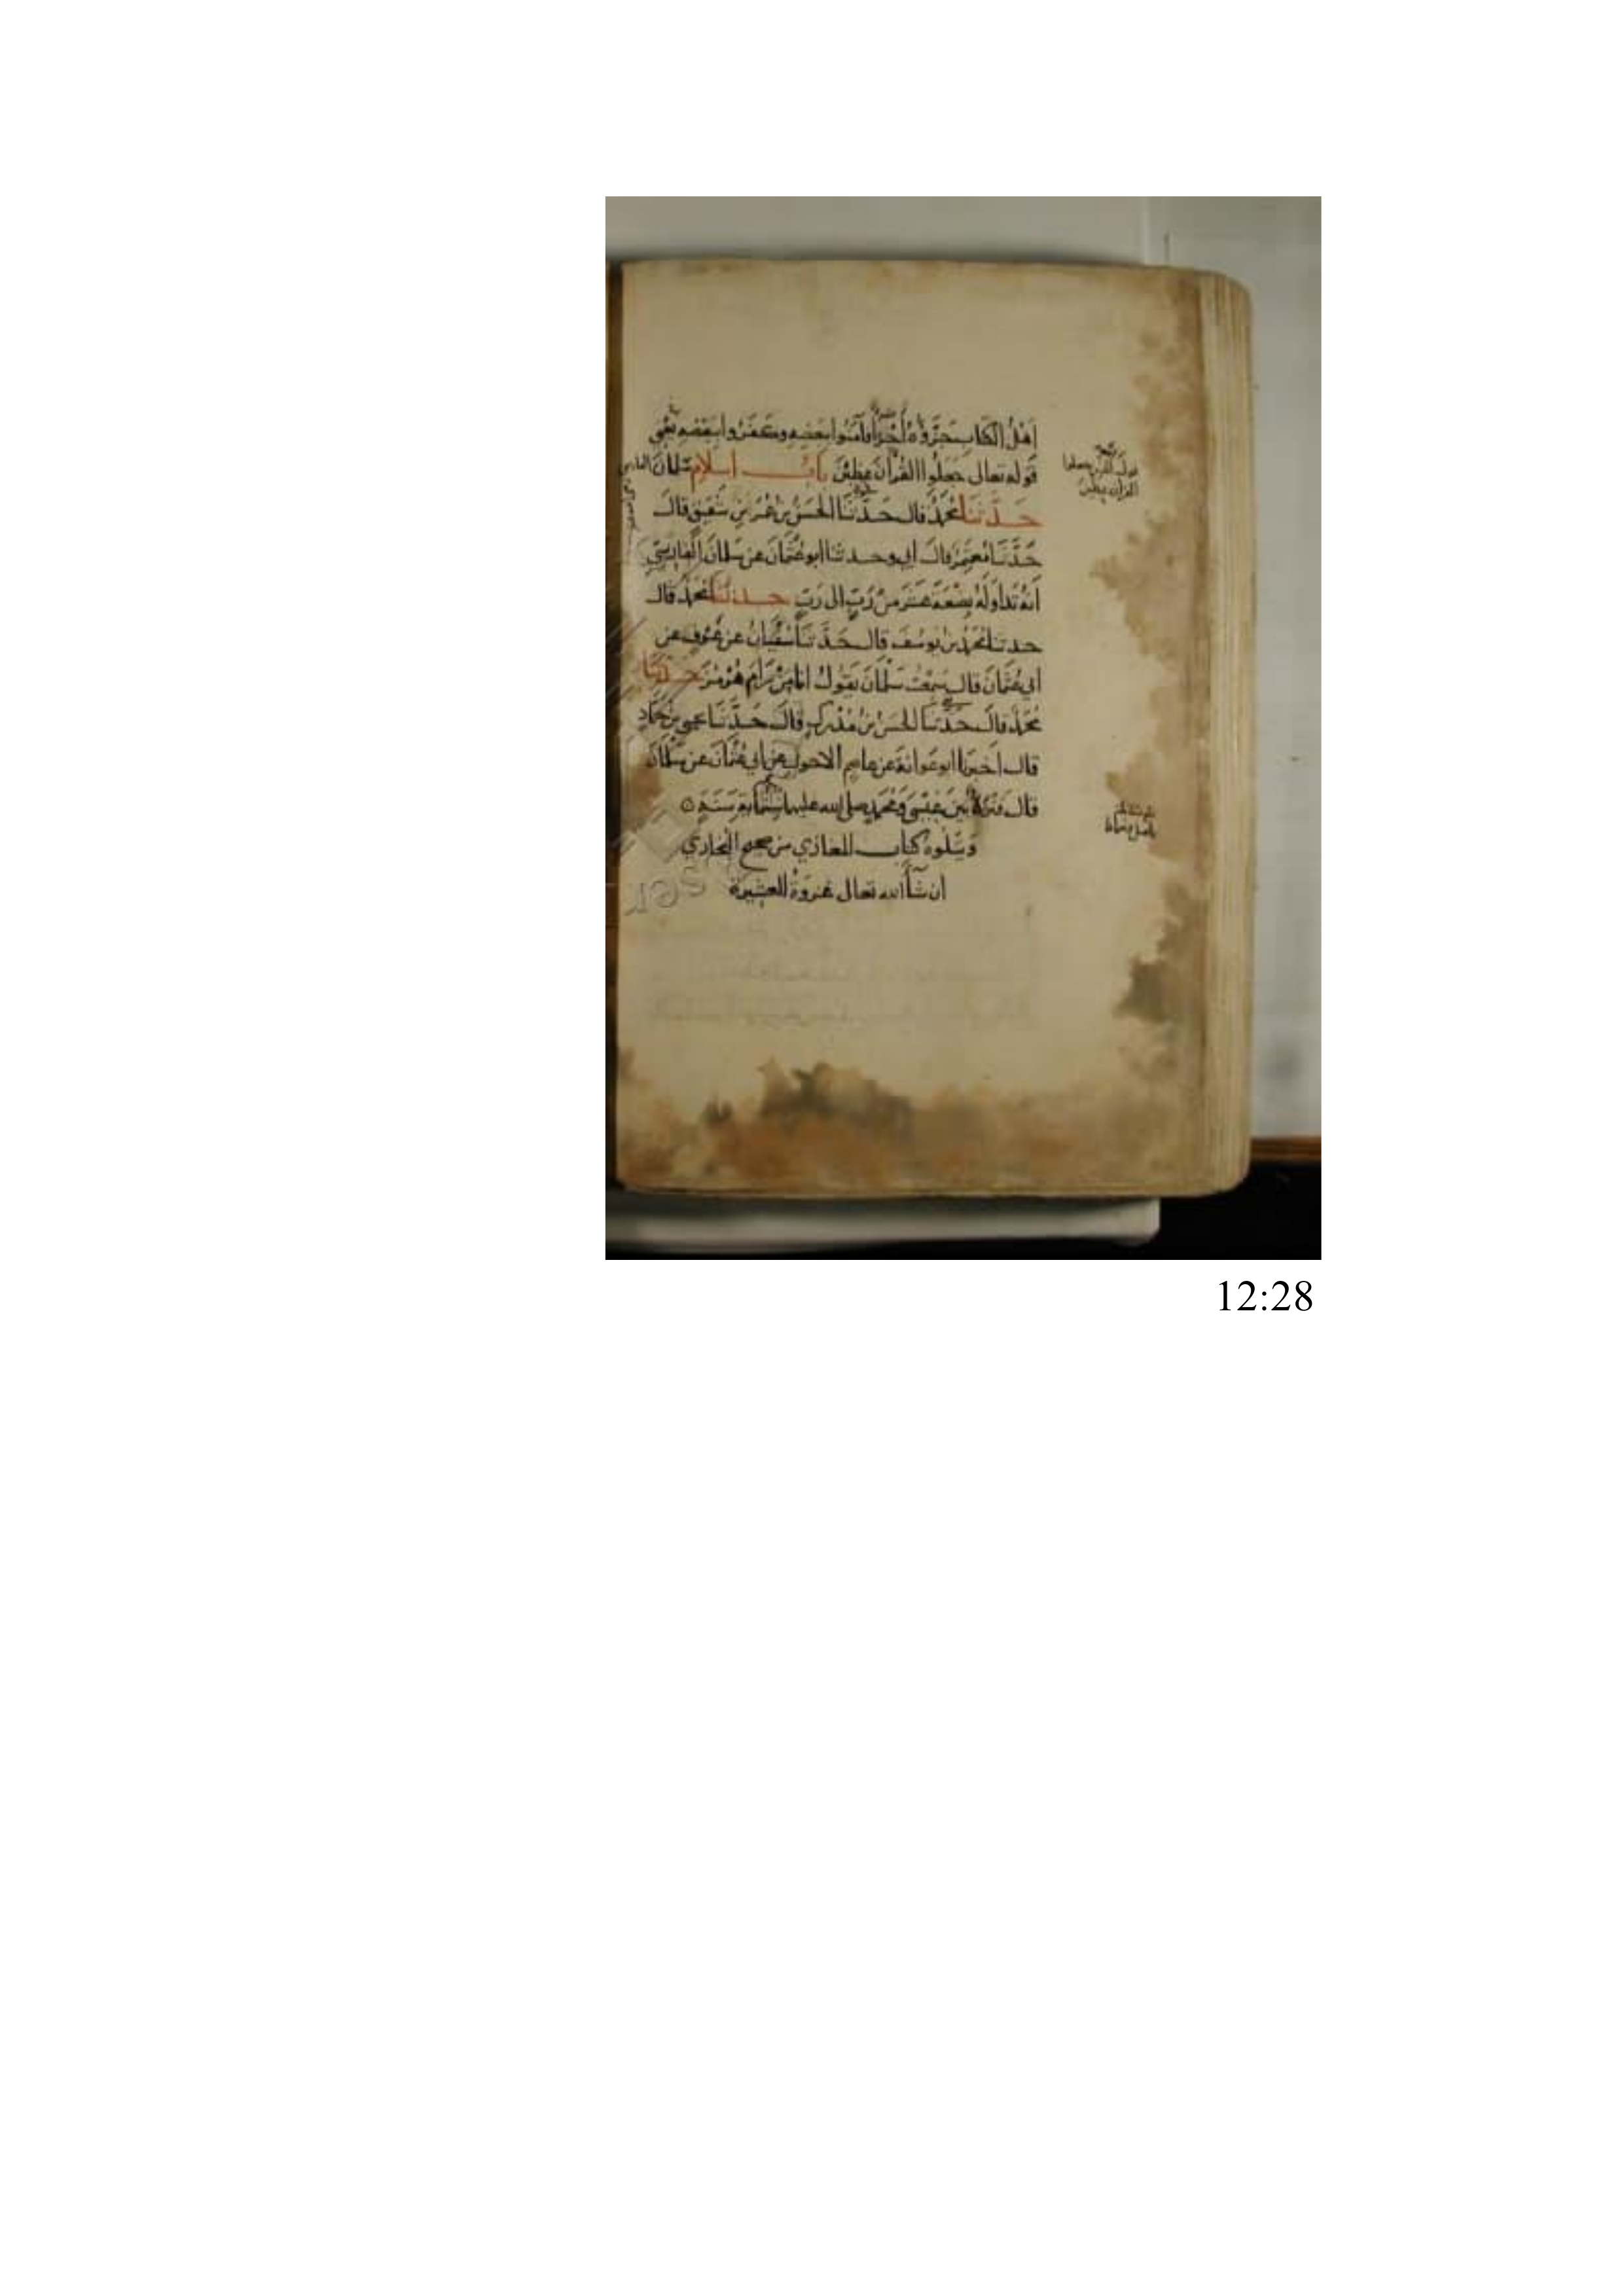 اهل الكتاب جزّؤه اجزاء فآمنوا ببعضه وكفروا ببعضه يعني
قوله تعالى جعلوا القرآن عضين باب اسلام سلمان الفارسي
حدثنا محمد قال حدثنا الحسن بن عمر بن شقيق قال
حدثنا معتمر قال ابي وحدثنا ابو عثمان عن سلمان الفارسي
انه تداوله بضعة عشر من رب الى رب حدثنا محمد قال
حدثنا محمد بن يوسف قال حدثنا سفيان عن عوف عن
ابي عثمان قال سمعت سلمان يقول انا من رام هرمز حدثنا
محمد قال حدثنا الحسن بن مدرك قال حدثنا يحيى بن حماد
قال اخبرنا ابو عوانة عن عاصم الاحول عن ابي عثمان عن سلمان
قال فترة بين عيسى ومحمد صلى الله عليهما ستمائة سنة
ويتلوه كتاب المغازي من صحيح البخاري
ان شاء الله تعالى غزوة العشيرة
القرآن عضين
12:28